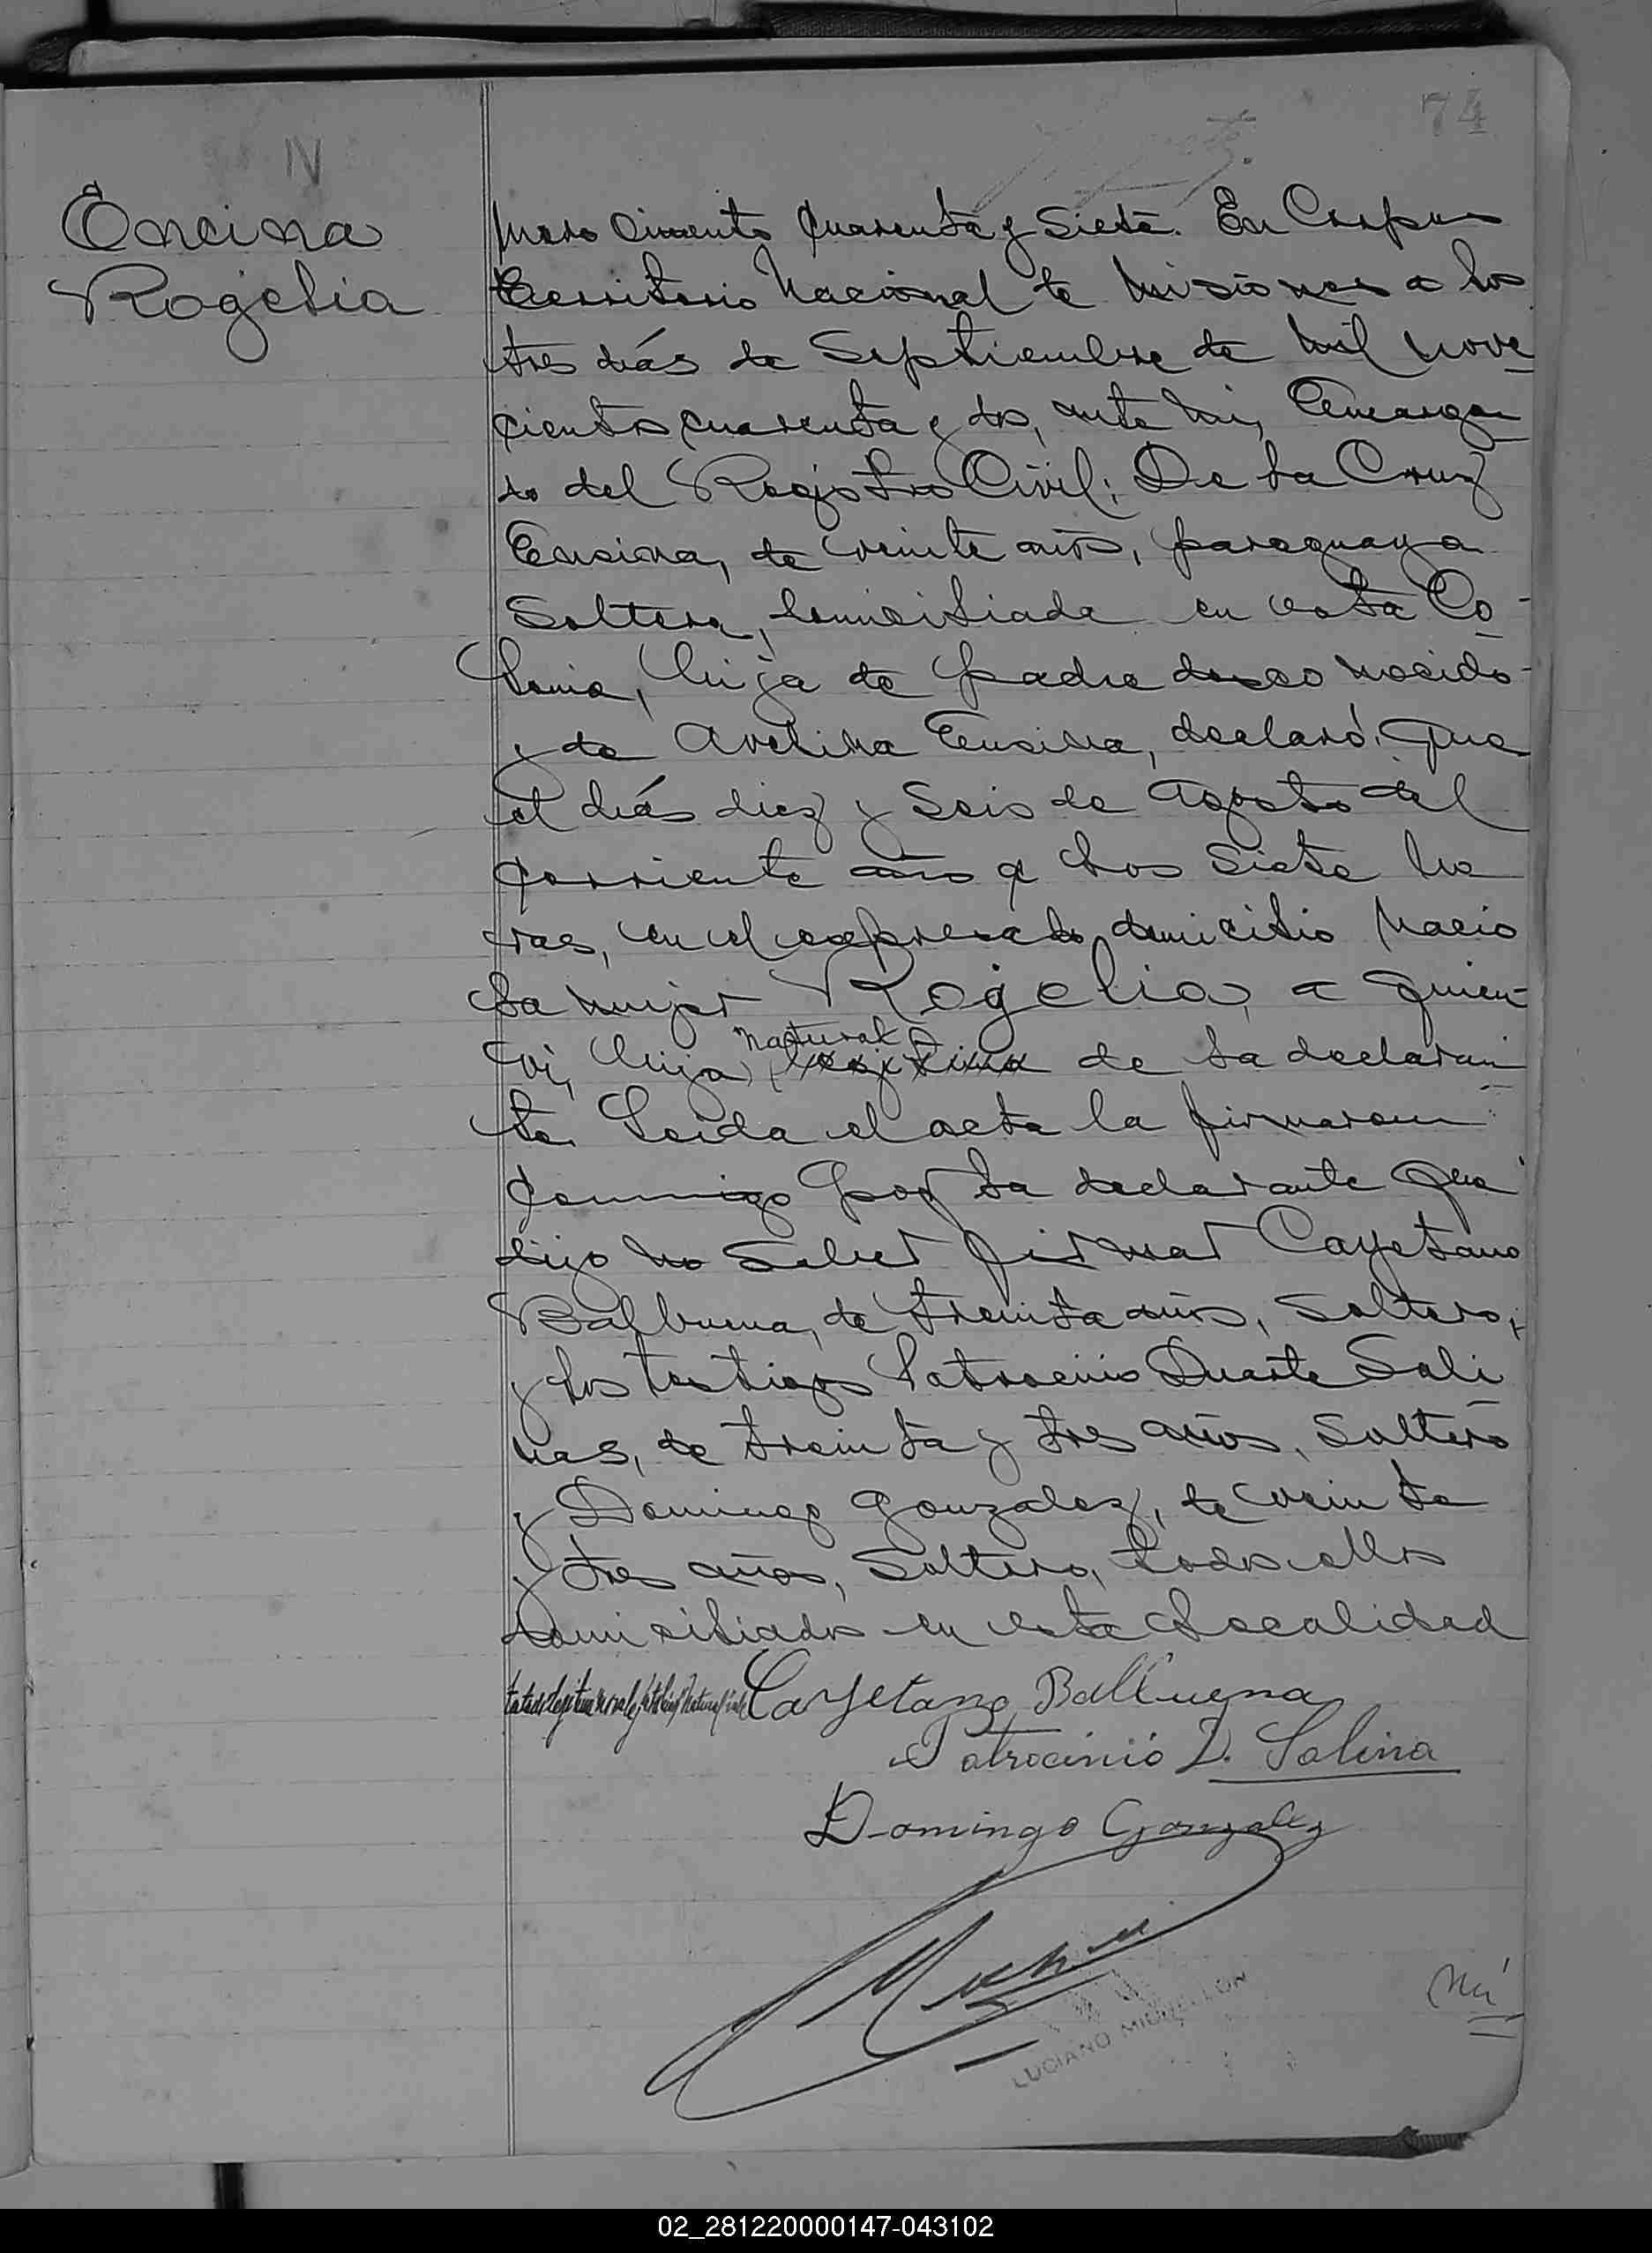 74
N
Encina
Rogelia
mero ciento cuarenta y siete. En Corpus
Territorio Nacional de Misiones a los
tres diás de Septiembre de mil nove
cientos cuarenta y dos, ante mi, Encarga
do del Registro Civil: De la Cruz
Encina, de veinte años, paraguaya
Soltera, domiciliada en esta Co-
lonia, hija de padre desconocido
y de Avelina Encina, declaró: Que
el diás diez y Seis de Agosto del
corriente año a las siete ho
ras, en el expresado domicilio nació
la mujer Rogelia, a quien
vi, hija legitima de la declaran
natural
te. Leida el acta la firmaron
conmigo por la declarante que
dijo no saber firmar Cayetano
Balbuena, de treinta años, Soltero,
y los testigos Patrocinio Duarte Sali
nas, de treinta y tres años, Soltero
y Domingo Gonzalez, de veinte
y tres años, Soltero, todos ellos
domiciliados en esta Localidad
Cayetano Balbuena
Patrocinio D. Salina
Domingo Gonzalez
LUCIANO MICHELLON
Nú
02_281220000147-043102